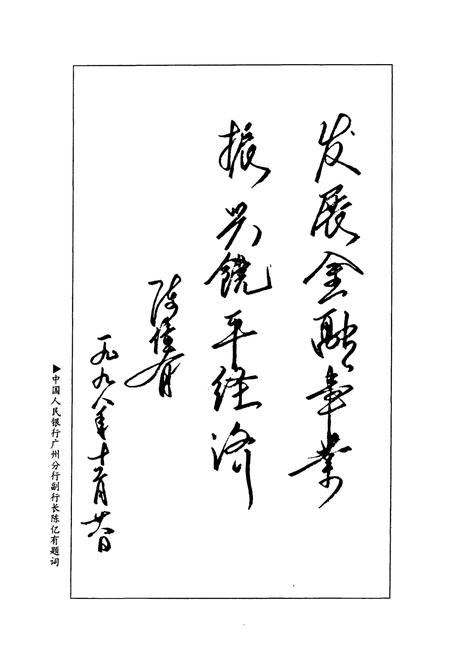 发展金融事业
振兴饶平经济
陈亿有
一九九八年十二月廿八日
▶中国人民银行广州分行副行长陈亿有题词